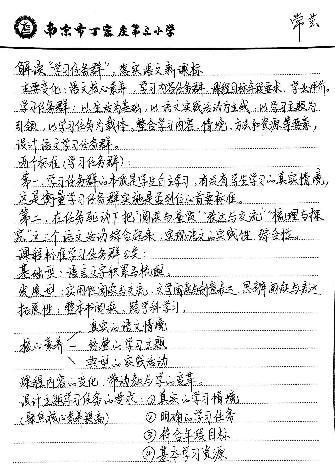 南京市丁家庄第二小学
常芸
解读"学习任务群",落实语文新课标
主要变化:语文核心素养,学习内容任务群,课程目标年段要求,学业评价。
学习任务群:以生活为基础,以语文实践活动为主线,以学习主题为
引领,以学习任务为载体,整合学习内容、情境、方法和资源等要素,
设计语文学习任务群。
两个标准(学习任务群):
第一,学习任务群的本质是学生自主学习,有没有学生学习的真实情境,
这是衡量学习任务群实施是否到位的首要标准。
第二,在任务驱动下把"阅读与鉴赏""表达与交流""梳理与探
究"这三个语文活动综合起来,实现语文的实践性、综合性。
课程标准学习任务群分类:
基础型:语言文字积累与梳理。
发展型:实用性阅读与交流,文学阅读与创意表达 思辨性阅读与表达
拓展性:整本书阅读、跨学科学习。
真实的语文情境
核心素养 经典的学习主题
典型的实践活动
课程内容的变化,带动教与学的变革。
设计主题学习任务的要求:①真实的学习情境
(聚焦核心素养提高) ②明确的学习任务
③符合年段目标
④基本学习资源